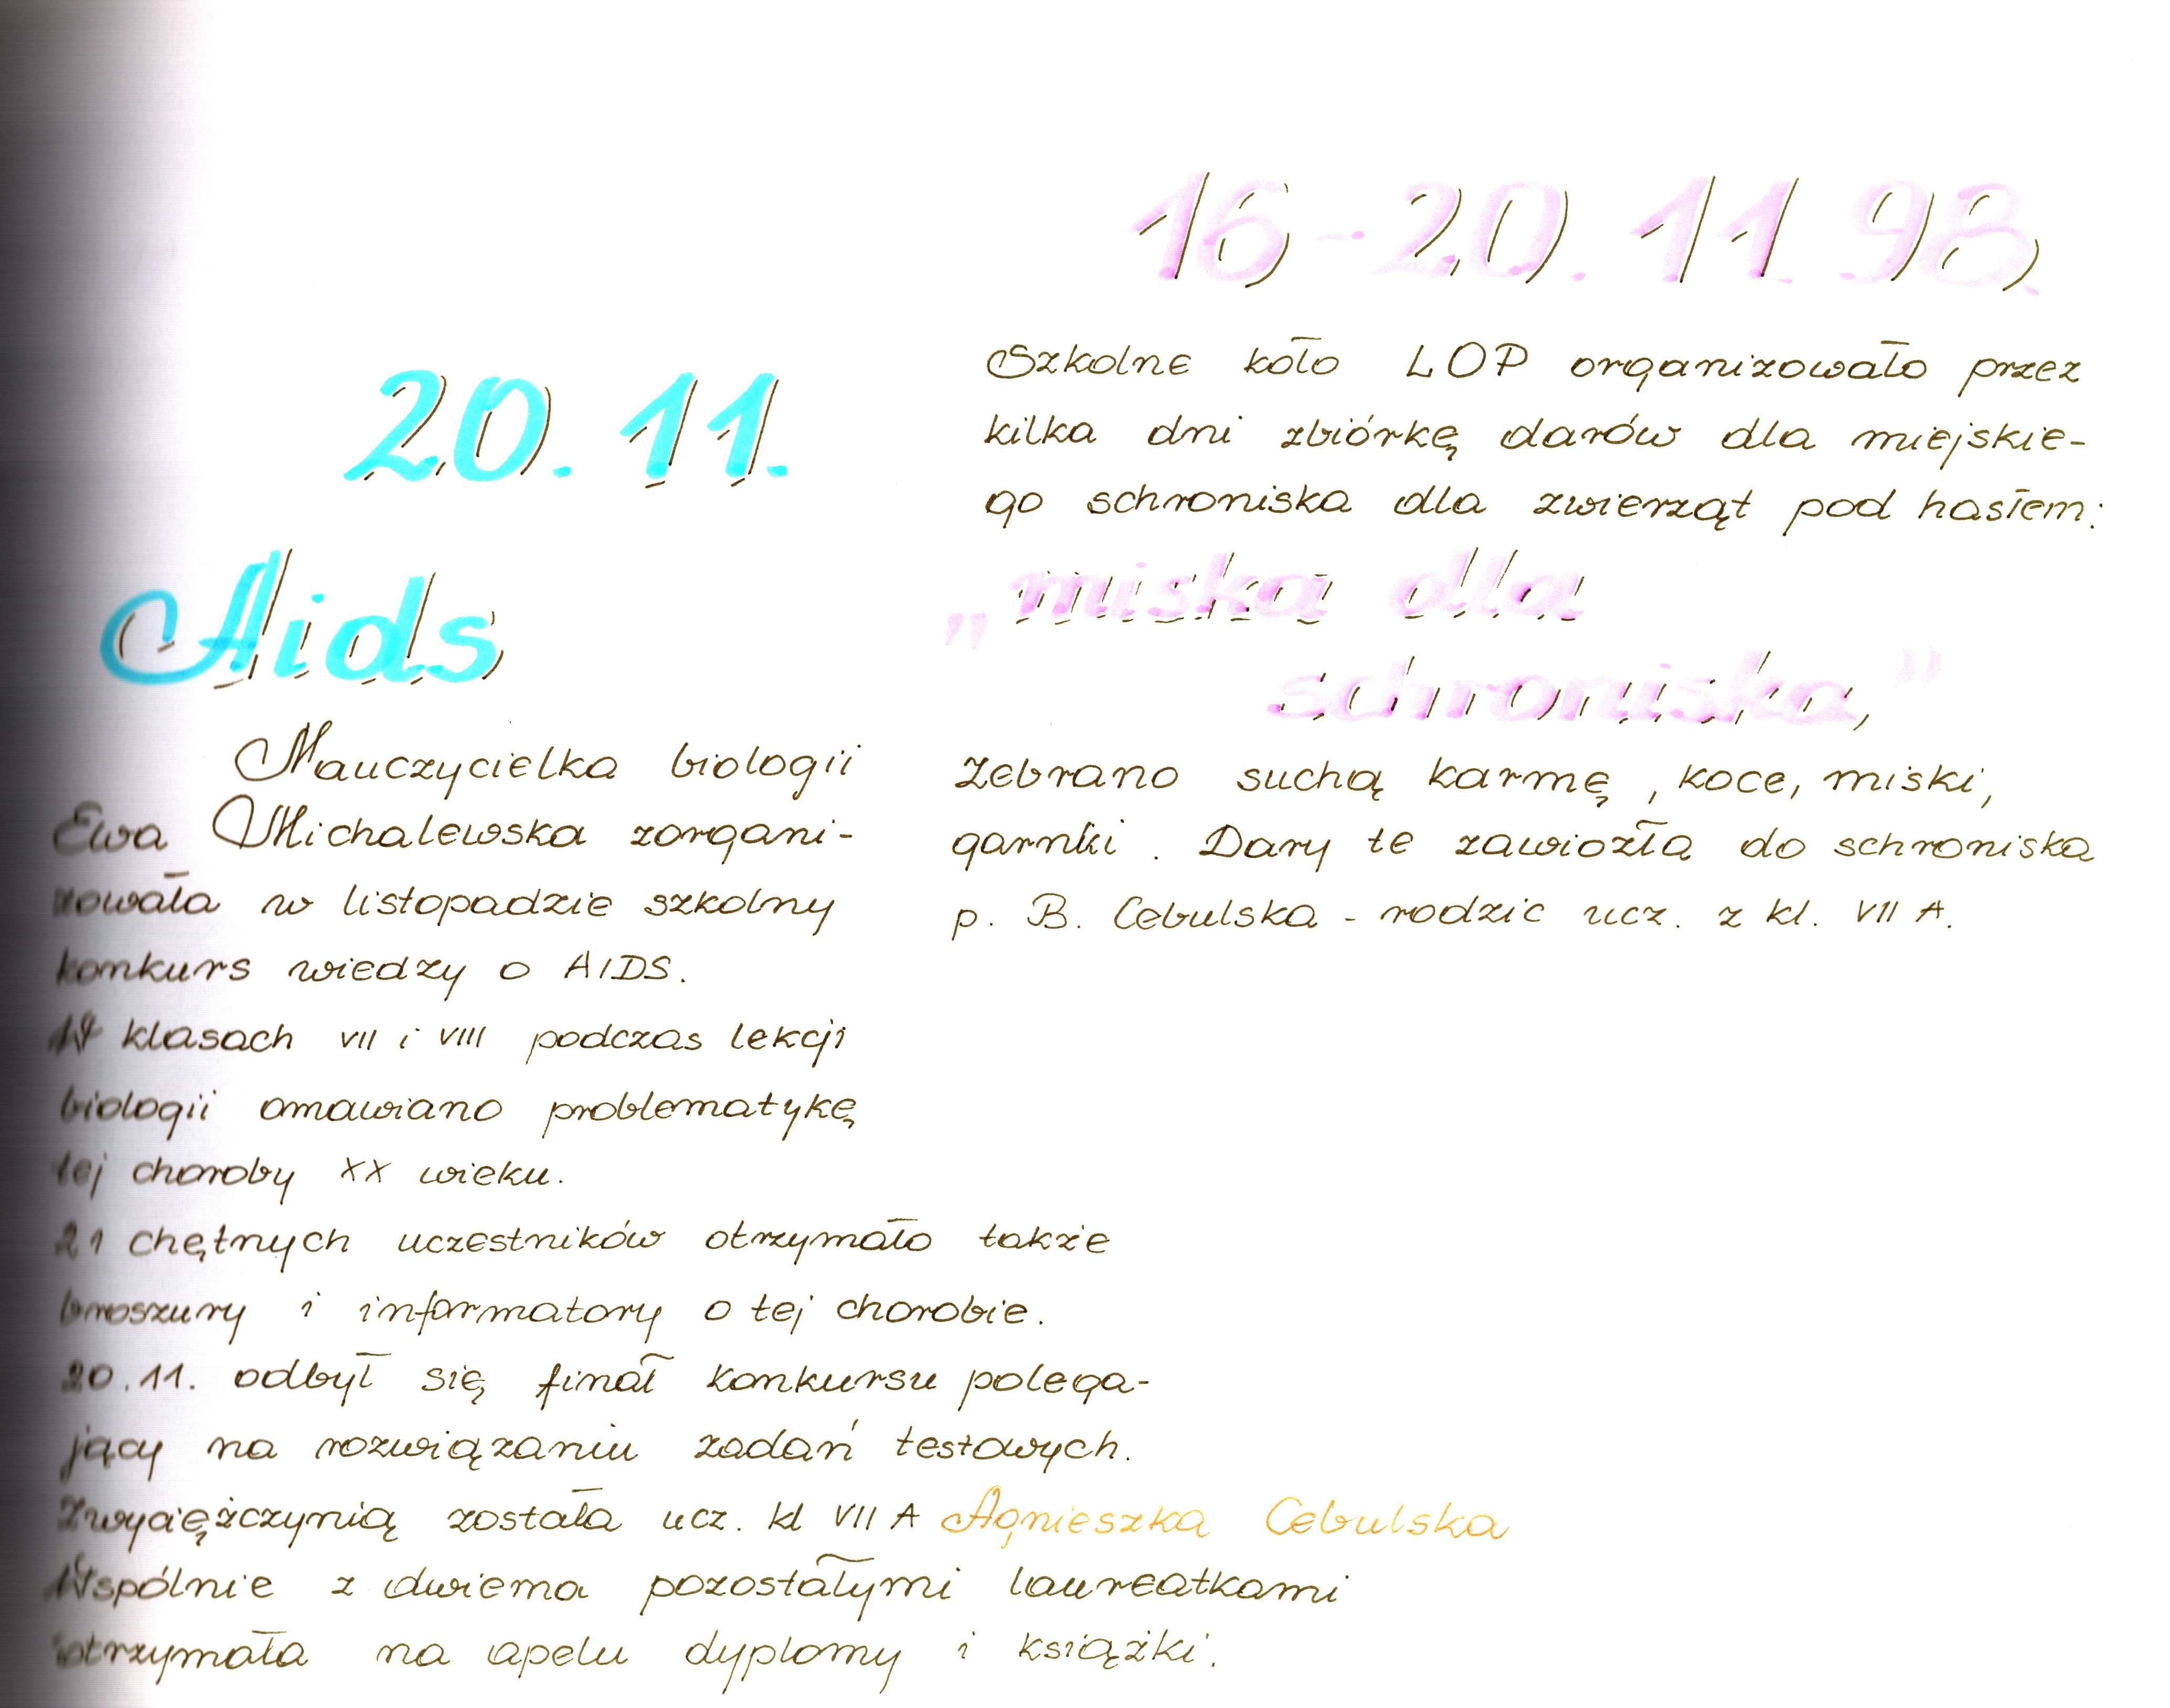 20. 11.
Aids
Nauczycielka biologii
Ewa Michalewska zorgani-
zowała w listopadzie szkolny
konkurs wiedzy o AIDS.
W klasach VII i VIII podczas lekcji
biologii omawiano problematykę
tej choroby XX wieku.
21 chętnych uczestników otrzymało także
broszury i informatory o tej chorobie.
20.11. odbył się finał konkursu polega-
jący na rozwiązaniu zadań testowych.
Zwyciężczynią została ucz. kl VII A Agnieszka Cebulska
Wspólnie z dwiema pozostałymi laureatkami
otrzymała na apelu dyplomy i książki.
16-20. 11. 98.
Szkolne koło LOP organizowało przez
kilka dni zbiórkę darów dla miejskie-
go schroniska dla zwierząt pod hasłem:
„miska dla
schroniska"
Zebrano suchą karmę, koce, miski,
garnki. Dary te zawiozła do schroniska
p. B. Cebulska - rodzic ucz. z kl. VII A.